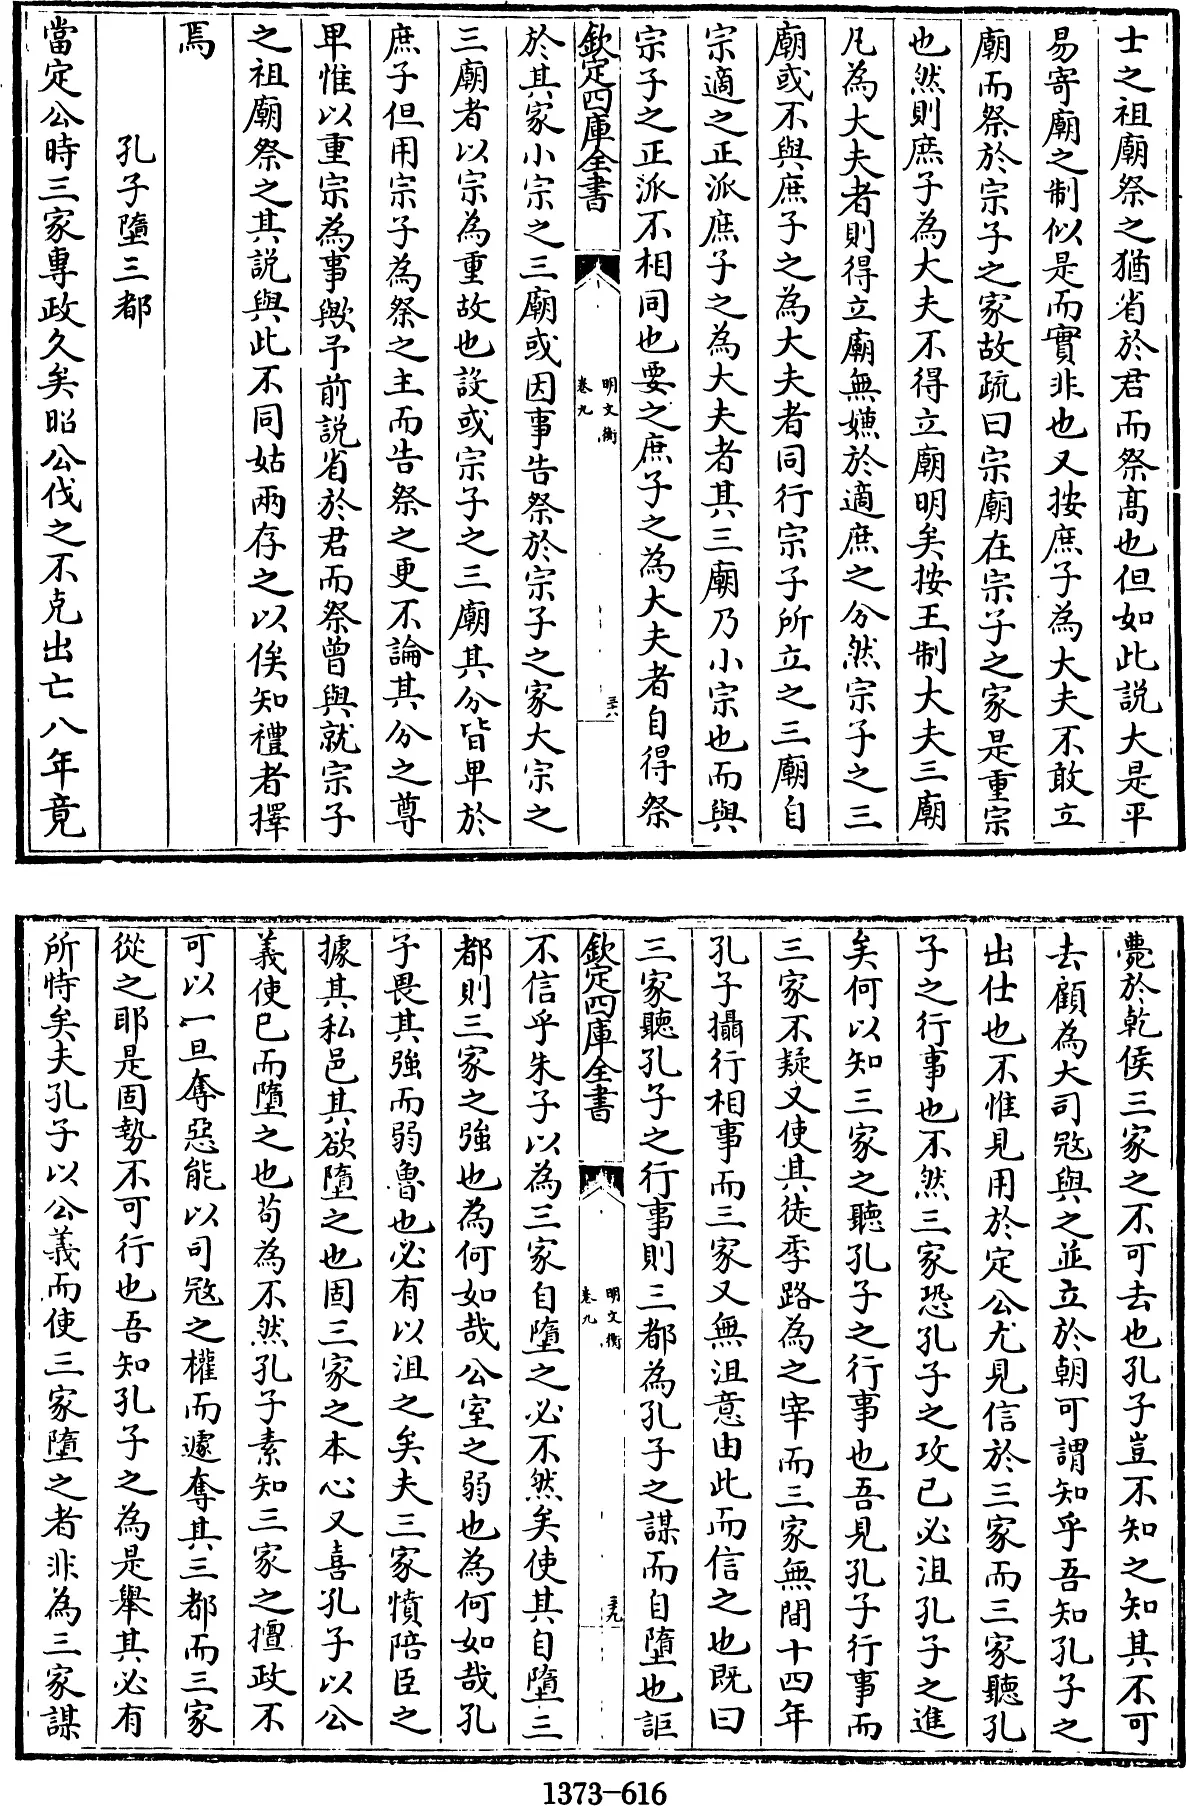 士之祖廟祭之猶省於君而祭髙也但如此説大是平
易寄廟之制似是而實非也又按庶子為大夫不敢立
廟而祭於宗子之家故疏曰宗廟在宗子之家是重宗
也然則庶子為大夫不得立廟明矣按王制大夫三廟
凡為大夫者則得立廟無嫌於適庶之分然宗子之三
廟或不與庶子之為大夫者同行宗子所立之三廟自
宗適之正派庶子之為大夫者其三廟乃小宗也而與
宗子之正派不相同也要之庶子之為大夫者自得祭
欽定四庫全書
明文衡
卷九
三十八
於其家小宗之三廟或因事告祭於宗子之家大宗之
三廟者以宗為重故也設或宗子之三廟其分皆卑於
庶子但用宗子為祭之主而告祭之更不論其分之尊
卑惟以重宗為事歟予前説省於君而祭曾與就宗子
之祖廟祭之其説與此不同姑兩存之以俟知禮者擇
焉
孔子墮三都
當定公時三家專政久矣昭公伐之不克出亡八年竟
薨於乾侯三家之不可去也孔子豈不知之知其不可
去顧為大司宼與之並立於朝可謂知乎吾知孔子之
出仕也不惟見用於定公尤見信於三家而三家聽孔
子之行事也不然三家恐孔子之攻已必沮孔子之進
矣何以知三家之聽孔子之行事也吾見孔子行事而
三家不疑又使其徒季路為之宰而三家無間十四年
孔子攝行相事而三家又無沮意由此而信之也既曰
三家聽孔子之行事則三都為孔子之謀而自墮也詎
欽定四庫全書
明文衡
卷九
三十九
不信乎朱子以為三家自墮之必不然矣使其自墮三
都則三家之強也為何如哉公室之弱也為何如哉孔
子畏其強而弱魯也必有以沮之矣夫三家憤陪臣之
據其私邑其欲墮之也固三家之本心又喜孔子以公
義使已而墮之也苟為不然孔子素知三家之擅政不
可以一旦奪惡能以司宼之權而遽奪其三都而三家
從之耶是固勢不可行也吾知孔子之為是舉其必有
所恃矣夫孔子以公義而使三家墮之者非為三家謀
1373-616